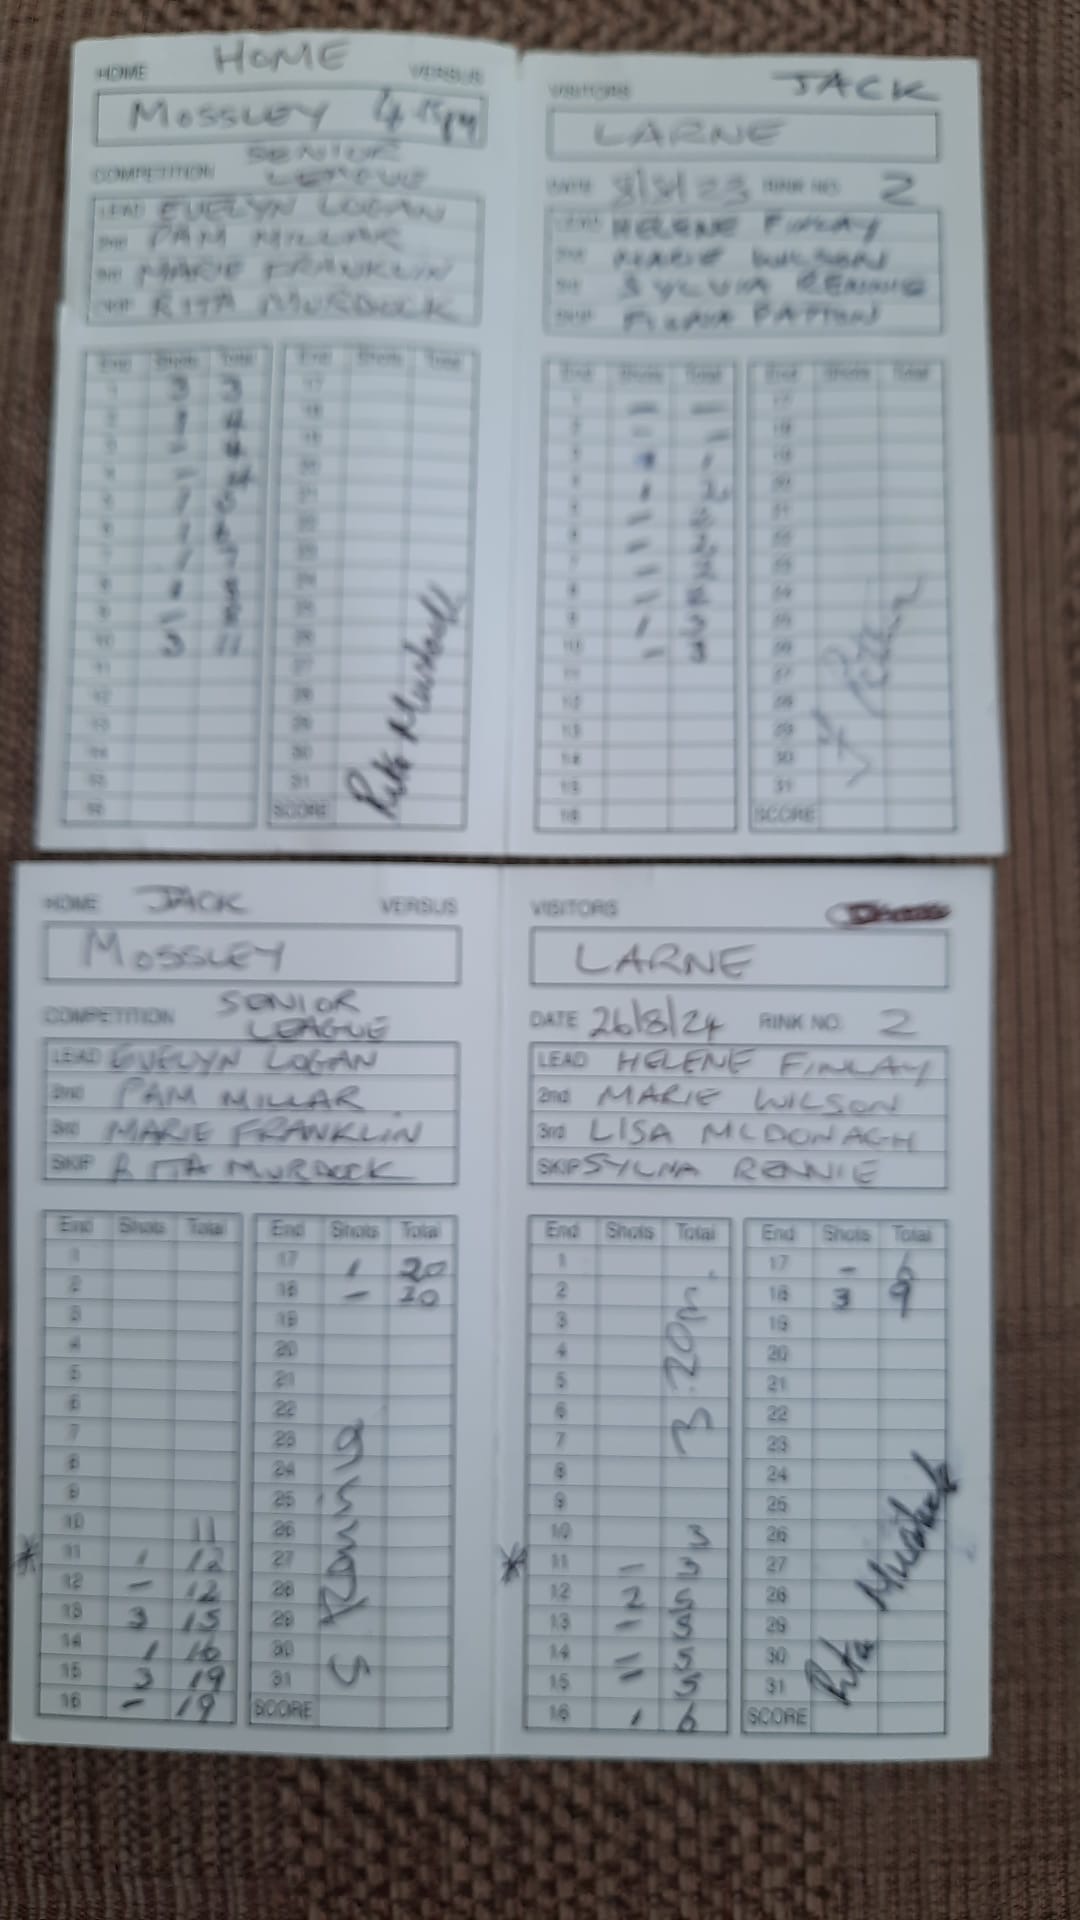 HOME HOME VERSUS
MOSSLEY 4.15pm
COMPETITION SENIOR
LEAGUE
LEAD EVELYN LOGAN
2nd PAM MILLAR
3rd MARIE FRANKLIN
SKIP RITA MURDOCK
End Shots Total
1 3 3
2 1 4
3 – 4
4 – 4
5 1 5
6 1 6
7 1 7
8 1 8
9 – 8
10 3 11
11
12
13
14
15
16
End Shots Total
17
18
19
20
21
22
23
24
25
26
27
28
29
30
31
SCORE
Rita Murdock
VISITORS JACK
LARNE
DATE RINK NO. 2
LEAD HELENE FINLAY
2nd MARIE WILSON
3rd SYLVIA RENNIE
SKIP PATTON
End Shots Total
1 – –
2 – –
3 1 1
4 1 2
5 – 2
6 – 2
7 – 2
8 – 2
9 1 3
10 – 3
11
12
13
14
15
16
End Shots Total
17
18
19
20
21
22
23
24
25
26
27
28
29
30
31
SCORE
HOME JACK VERSUS
MOSSLEY
COMPETITION SENIOR
LEAGUE
LEAD EVELYN LOGAN
2nd PAM MILLAR
3rd MARIE FRANKLIN
SKIP RITA MURDOCK
End Shots Total
1
2
3
4
5
6
7
8
9
10 11
* 11 1 12
12 – 12
13 3 15
14 1 16
15 3 19
16 – 19
End Shots Total
17 1 20
18 – 20
19
20
21
22
23
24
25
26
27
28
29
30
31
SCORE
S Rennie
VISITORS
LARNE
DATE 26/8/24 RINK NO. 2
LEAD HELENE FINLAY
2nd MARIE WILSON
3rd LISA MCDONAGH
SKIP SYLVIA RENNIE
End Shots Total
1
2
3
4
5
6
7
8
9
10 3
* 11 – 3
12 2 5
13 – 5
14 – 5
15 – 5
16 1 6
3.20pm
End Shots Total
17 – 6
18 3 9
19
20
21
22
23
24
25
26
27
28
29
30
31
SCORE
Rita Murdock